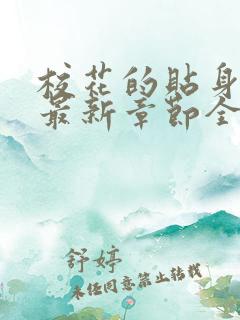 校花的贴身
最新章节全
舒婷
未经同意禁止转载